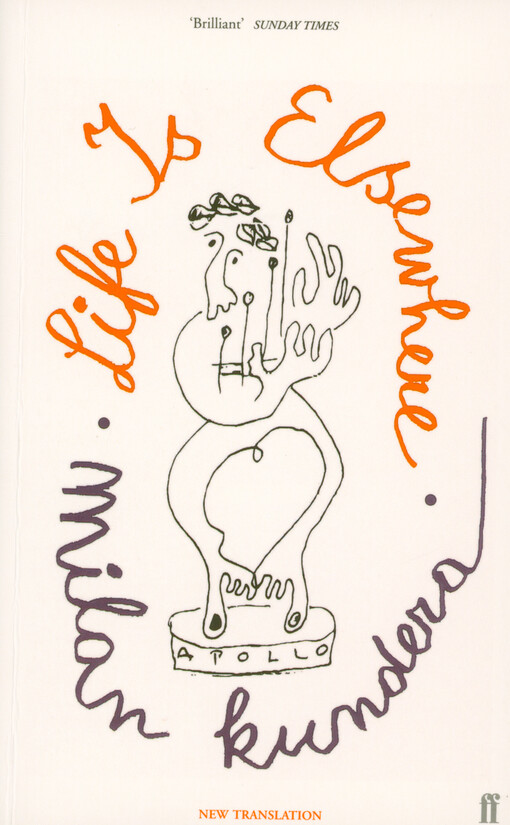 ‘Brilliant’ SUNDAY TIMES
Life Is Elsewhere
milan kundera
APOLLO
NEW TRANSLATION
ff